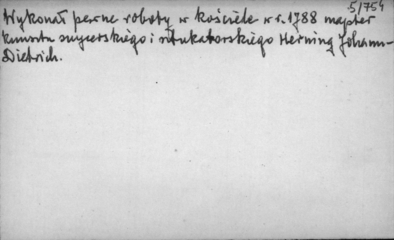 5/754
Wykonał pewne roboty w kościele w r. 1788 majster
kunsztu snycerskiego i sztukatorskiego Herning Johann-
Dietrich.